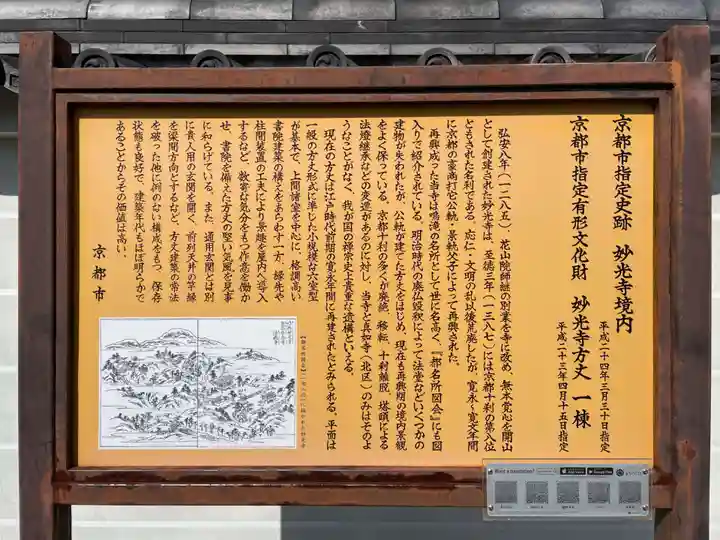 京都市指定史跡　妙光寺境内
平成二十四年三月三十日指定
京都市指定有形文化財　妙光寺方丈　一棟
平成二十三年四月十五日指定
弘安八年（一二八五）、花山院師継の別業を寺に改め、無本覚心を開山
として創建された妙光寺は、至徳三年（一三八七）には京都十刹の第八位
ともされた名刹である。応仁・文明の乱以後荒廃したが、寛永～寛文年間
に京都の豪商打它公軌・景軌父子によって再興された。
再興成った当寺は鳴滝の名所として世に名高く、『都名所図会』にも図
入りで紹介されている。明治時代の廃仏毀釈によって法堂などいくつかの
建物が失われたが、公軌が建てた方丈をはじめ、現在も再興期の境内景観
をよく保っている。京都十刹の多くが廃絶、移転、十刹離脱、塔頭による
法燈継承などの変遷があるのに対し、当寺と真如寺（北区）のみはそのよ
うなことがなく、我が国の禅宗史上貴重な遺構といえる。
現在の方丈は江戸時代前期の寛永年間に再建されたとみられる。平面は
一般の方丈形式に準じた小規模な六室型
が基本で、上間諸室を中心に、格調高い
書院建築の構えをあらわす一方、縁先や
柱間装置の工夫により景趣を屋内へ導入
するなど、数寄な気分をもつ作意を働か
せ、書院を備えた方丈の堅い気風を見事
に和らげている。また、通用玄関とは別
に貴人用の玄関を開く、前列天井の竿縁
を梁間方向とするなど、方丈建築の常法
を破った他に例のない構成をもつ。保存
状態も良好で、建築年代もほぼ明らかで
あることからその価値は高い。
京都市
Want a translation?